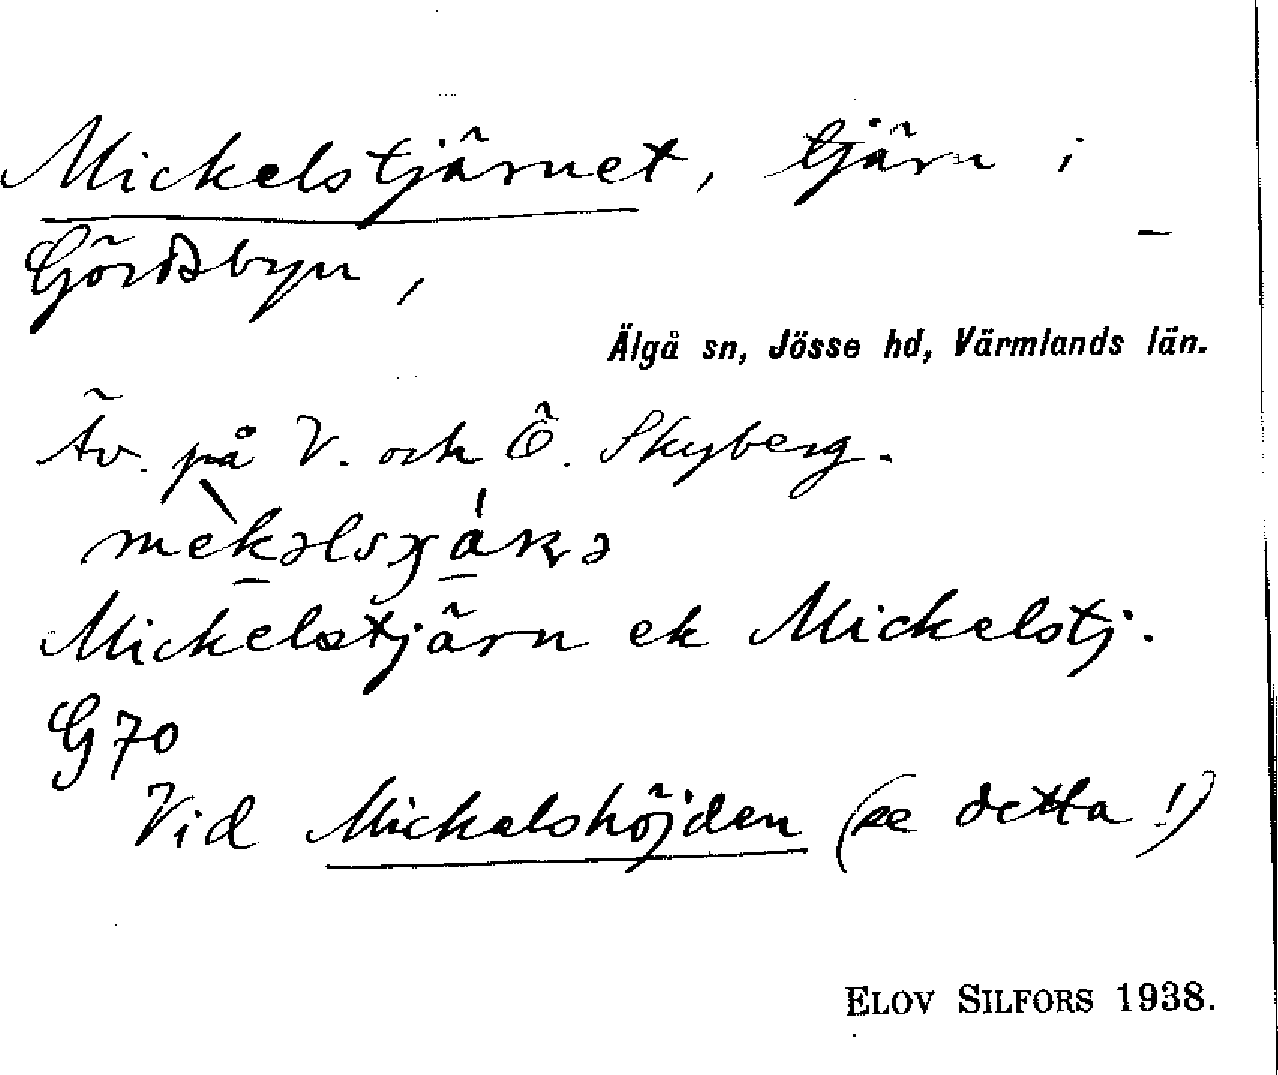 Mickelstjärnet, tjärn i
Gördsbyn,
Älgå sn, Jösse hd, Värmlands län.
Äv. på V. och Ö. Skyberg.
Mickelstjärn ek Mickelstj.
G 70
Vid Mickelshöjden (se detta!)
ELOV SILFORS 1938.